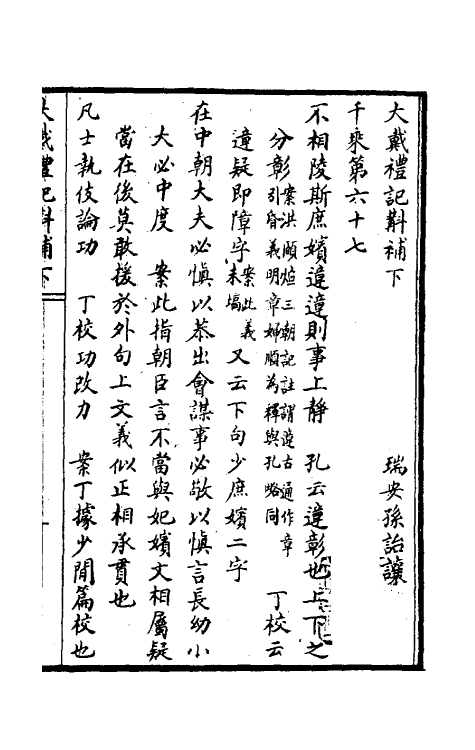 大戴禮記斠補下
瑞安孫詒讓
千乘第六十七
不相陵斯庶嬪違違則事上靜　孔云違彰也上下之
分彰案洪頤煊三朝記註謂違古通作章引昏義明章婦順為釋與孔略同　丁校云
違疑即障字案此義未塙　又云下句少庶嬪二字
在中朝大夫必慎以恭出會謀事必敬以慎言長幼小
大必中度　案此指朝臣言不當與妃嬪文相屬疑
當在後莫敢援於外句上文義似正相承貫也
凡士執伎論功　丁校功改力　案丁據少閒篇校也
大戴禮記斠補下